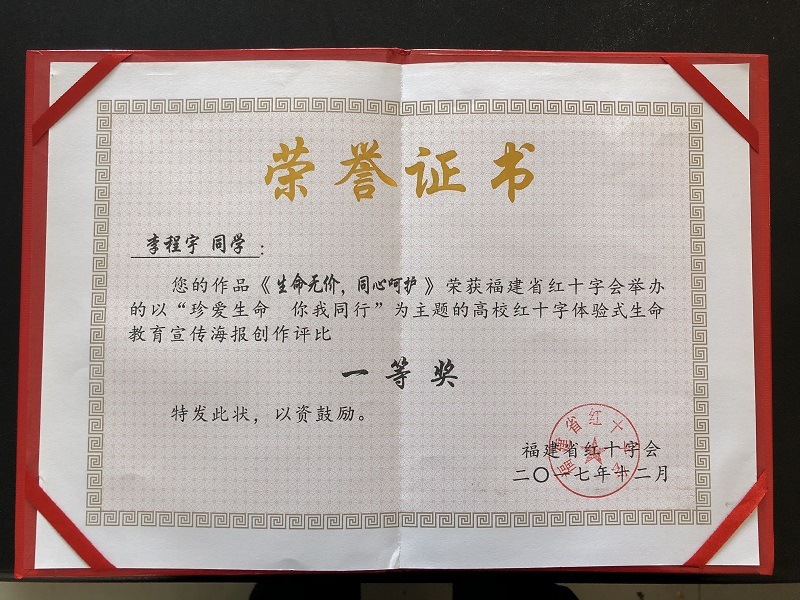 荣誉证书
李程宇 同学：
您的作品《生命无价，同心呵护》荣获福建省红十字会举办
的以“珍爱生命 你我同行”为主题的高校红十字体验式生命
教育宣传海报创作评比
一等奖
特发此状，以资鼓励。
福建省红十字会
二〇一七年十二月
福建省红十字会